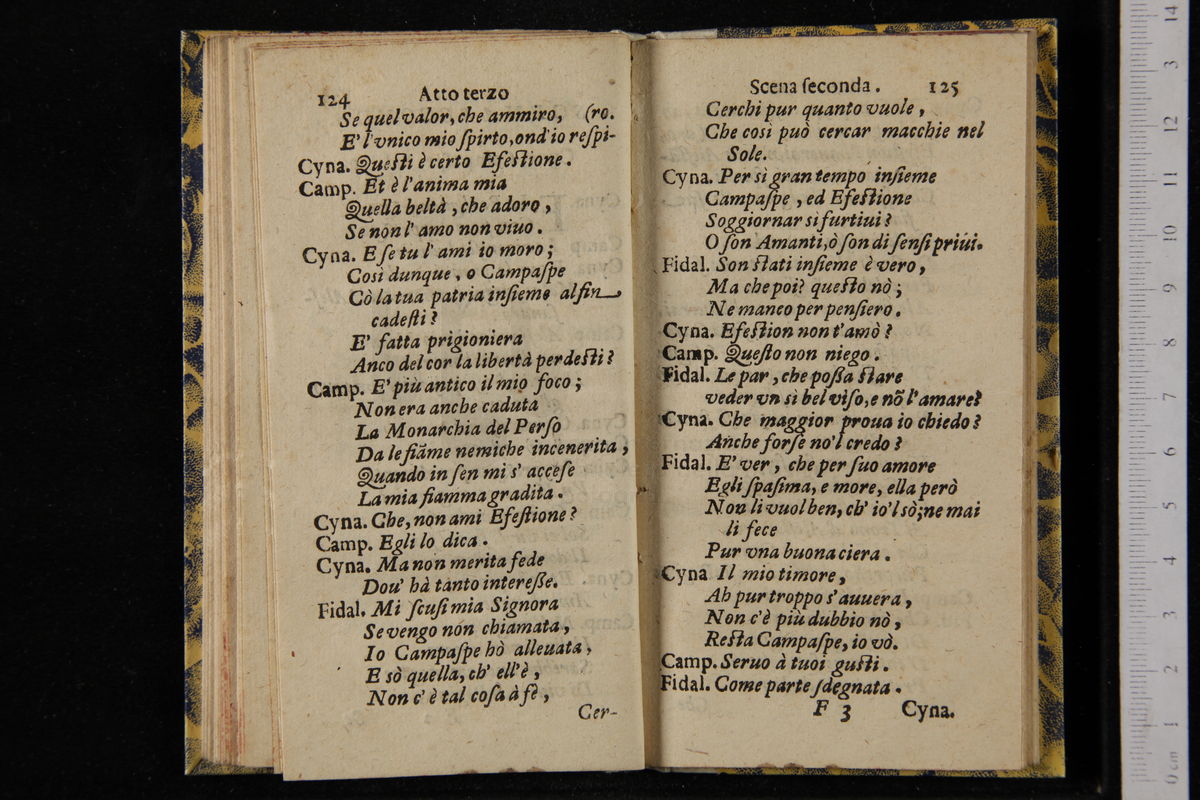 124 Atto terzo
Se quel valor, che ammiro, (ro.
E' l'vnico mio ſpirto, ond' io reſpi-
Cyna. Queſti è certo Efeſtione.
Camp. Et è l'anima mia
Quella beltà, che adoro,
Se non l' amo non viuo.
Cyna. E ſe tu l' ami io moro;
Così dunque, o Campaſpe
Cò la tua patria inſieme al fin
cadeſti?
E' fatta prigioniera
Anco del cor la libertà perdeſti?
Camp. E' più antico il mio foco;
Non era anche caduta
La Monarchia del Perſo
Da le fiãme nemiche incenerita,
Quando in ſen mi s' acceſe
La mia fiamma gradita.
Cyna. Che, non ami Efeſtione?
Camp. Egli lo dica.
Cyna. Ma non merita fede
Dou' hà tanto intereſſe.
Fidal. Mi ſcuſi mia Signora
Se vengo non chiamata,
Io Campaſpe hò alleuata,
E sò quella, ch' ell'è,
Non c' è tal coſa à fè,
Cer-
Scena ſeconda. 125
Cerchi pur quanto vuole,
Che così può cercar macchie nel
Sole.
Cyna. Per sì gran tempo inſieme
Campaſpe, ed Efeſtione
Soggiornar sì furtiui?
O ſon Amanti, ò ſon di ſenſi priui.
Fidal. Son ſtati inſieme è vero,
Ma che poi? queſto nò;
Ne manco per penſiero.
Cyna. Efeſtion non t'amò?
Camp. Queſto non niego.
Fidal. Le par, che poſſa ſtare
veder vn sì bel viſo, e nõ l'amare?
Cyna. Che maggior proua io chiedo?
Anche forſe no'l credo?
Fidal. E' ver, che per ſuo amore
Egli ſpaſima, e more, ella però
Non li vuol ben, ch' io'l sò; ne mai
li fece
Pur vna buona ciera.
Cyna Il mio timore,
Ah pur troppo s' auuera,
Non c'è più dubbio nò,
Reſta Campaſpe, io vò.
Camp. Seruo à tuoi guſti.
Fidal. Come parte ſdegnata.
F 3 Cyna.
14
13
12
11
10
9
8
7
6
5
4
3
2
1
0 cm